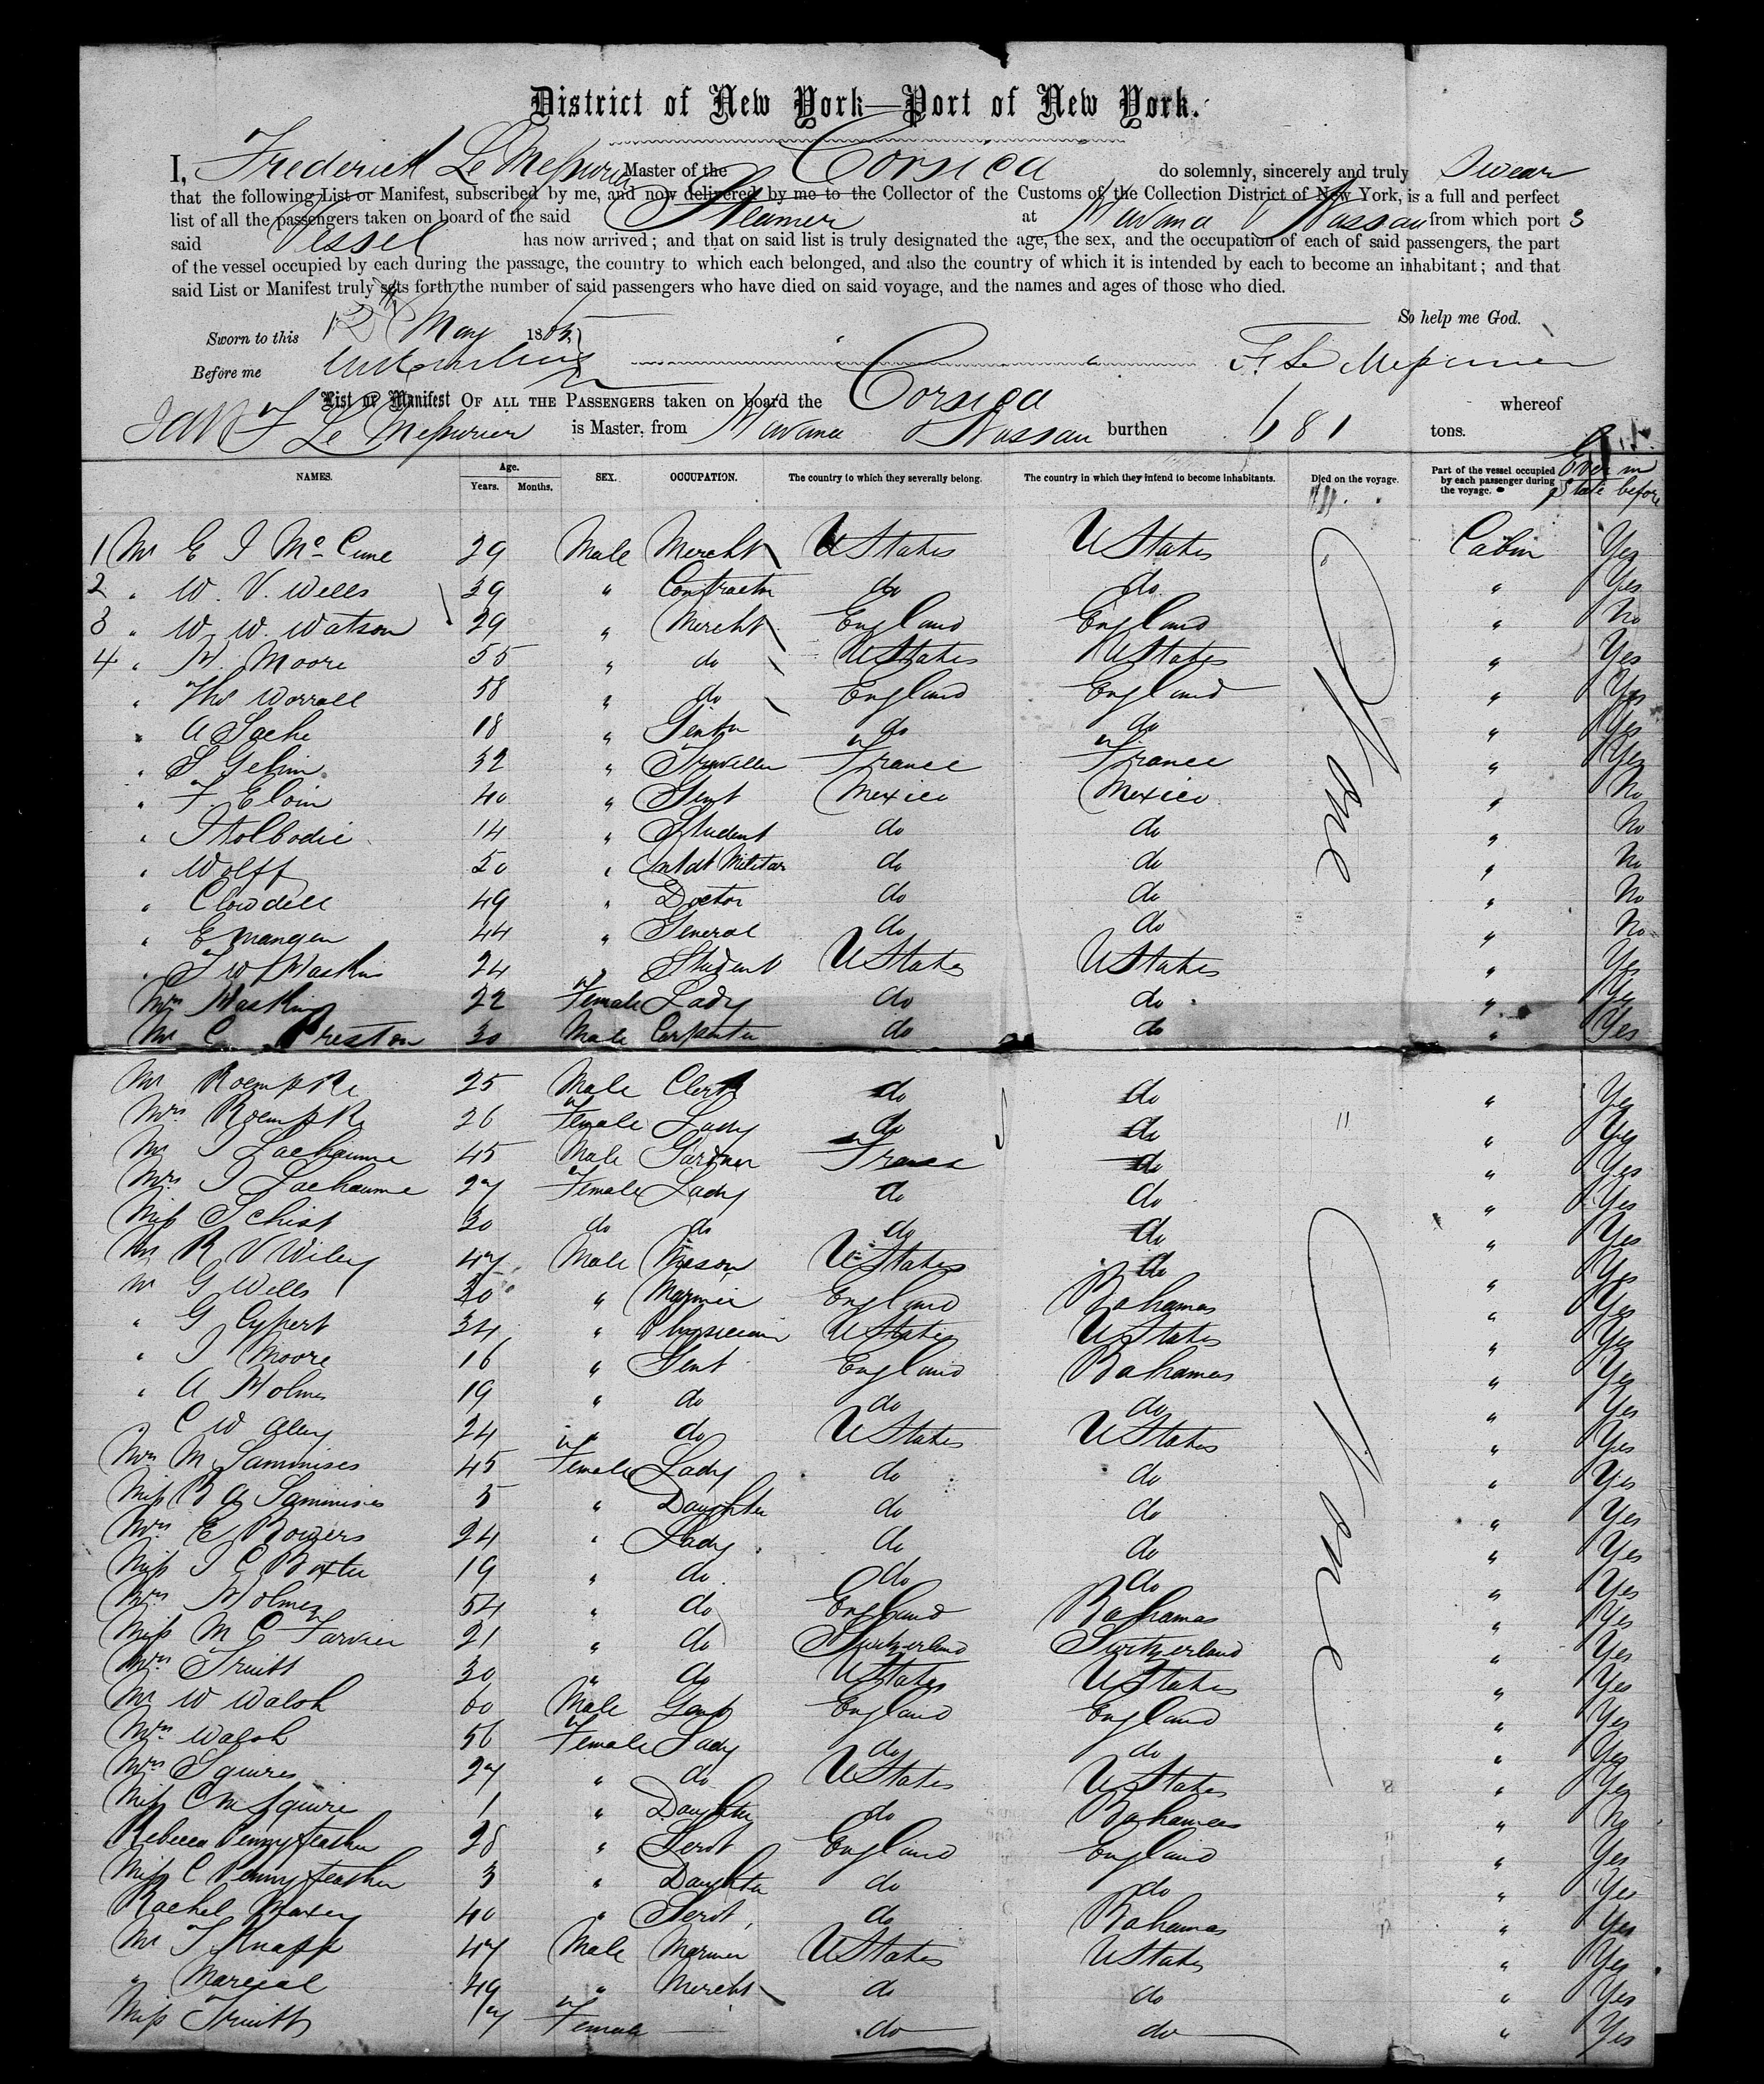 District of New York—Port of New York.
I, Frederick Le Mesurier Master of the Corsica do solemnly, sincerely and truly Swear
that the following List or Manifest, subscribed by me, and now delivered by me to the Collector of the Customs of the Collection District of New York, is a full and perfect
list of all the passengers taken on board of the said Steamer at Havana & Nassau from which port s
said Vessel has now arrived; and that on said list is truly designated the age, the sex, and the occupation of each of said passengers, the part
of the vessel occupied by each during the passage, the country to which each belonged, and also the country of which it is intended by each to become an inhabitant; and that
said List or Manifest truly sets forth the number of said passengers who have died on said voyage, and the names and ages of those who died.
So help me God.
Sworn to this 12th May 1865
Before me F. Le Mesurier
List or Manifest OF ALL THE PASSENGERS taken on board the Corsica whereof
F Le Mesurier is Master, from Havana & Nassau burthen tons.
NAMES. Age. Years. Months. SEX. OCCUPATION. The country to which they severally belong. The country in which they intend to become inhabitants. Died on the voyage. Part of the vessel occupied by each passenger during the voyage. Ever in State before
1 Mr E J McCune 29 Male Mercht U States U States Cabin Yes
2 " W. V. Wells 39 " Contractor do do " Yes
3 " W. W. Watson 29 " Mercht England England " No
4 " H. Moore 55 " do U States U States " Yes
" Thos Worrall 58 " do England England " Yes
" A Sache 18 " Gentn do do " Yes
" S Gelim 32 " Traveller France France " Yes
" F Eloin 40 " Gent Mexico Mexico " No
" 14 " Student do do " No
" Wolff 50 " do do " No
" Clowdell 49 " Doctor do do " No
" E Mangen 44 " General do do " No
" J W Haskins 24 " Student U States U States " Yes
Mrs Haskins 22 Female Lady do do " Yes
Mr C Preston 30 Male Carpenter do do " Yes
None
Mr Roempke 25 Male Clerk do do " Yes
Mrs Roempke 26 Female Lady do do " Yes
Mr J Lachaume 45 Male Gardner France do " Yes
Mrs J Lachaume 27 Female Lady do do " Yes
Miss Schist 30 do do do do " Yes
Mr R V Wiley 47 Male Mason U States do " Yes
Mr G Wells 30 " Mariner England Bahamas " Yes
" G Cypert 34 " Physician U States U States " Yes
" J Moore 16 " Gent England Bahamas " Yes
" A Holmes 19 " do do do " Yes
" C W Alley 24 " do U States U States " Yes
Mrs M Sammises 45 Female Lady do do " Yes
Miss B A Sammises 5 " Daughter do do " Yes
Mrs E Rogers 24 " Lady do do " Yes
Miss J C Baxter 19 " do do do " Yes
Mrs Holmes 54 " do England Bahamas " Yes
Miss M C Farvier 21 " do Switzerland Switzerland " Yes
Mrs Truitt 30 " do U States U States " Yes
Mr W Walsh 60 Male Gent England England " Yes
Mrs Walsh 56 Female Lady do do " Yes
Mrs Squires 27 " do U States U States " Yes
Miss C M Squire 1 " Daughter do Bahamas " No
Rebecca Pennyfeather 28 " Servt England England " Yes
Miss C Pennyfeather 3 " Daughter do do " Yes
Rachel Maxey 40 " Servt do Bahamas " Yes
Mr T Knapp 47 Male Mariner U States U States " Yes
" Marcial 49 " Mercht do do " Yes
Miss Truitt 17 Female do do " Yes
None